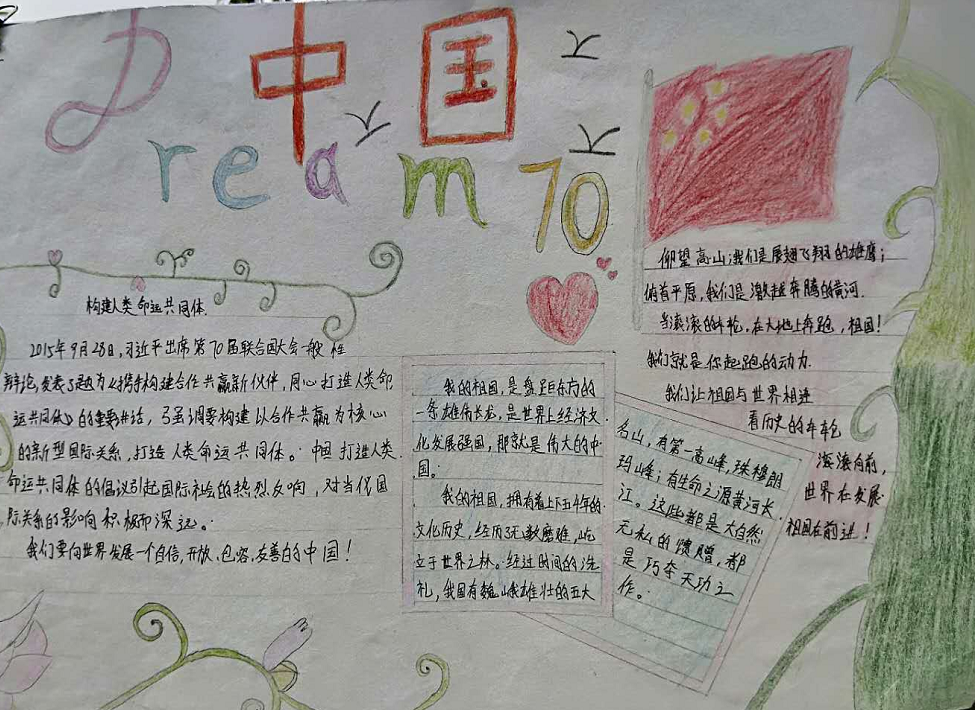 中国
Dream 70
构建人类命运共同体.
2015年9月28日,习近平出席第70届联合国大会一般性
辩论,发表了题为《携手构建合作共赢新伙伴,同心打造人类命
运共同体》的重要讲话,强调要构建以合作共赢为核心
的新型国际关系,打造人类命运共同体。中国打造人类
命运共同体的倡议引起国际社会的热烈反响,对当代国
际关系的影响积极而深远。
我们要向世界发展一个自信,开放,包容,友善的中国!
我的祖国,是盘距东方的
一条雄伟长龙,是世界上经济文
化发展强国,那就是伟大的中
国。
我的祖国,拥有着上下五千年的
文化历史,经历了无数磨难,屹
立于世界之林。经过时间的洗
礼,我国有巍峨雄壮的五大
名山,有第一高峰,珠穆朗
玛峰;有生命之源黄河长
江。这些都是大自然
无私的馈赠,都
是巧夺天功之
作。
仰望高山我们是展翅飞翔的雄鹰;
俯首平原,我们是激越奔腾的黄河.
当滚滚的车轮,在大地上奔跑,祖国!
我们就是你起跑的动力.
我们让祖国与世界相连
看历史的车轮
滚滚向前,
世界在发展
祖国在前进!